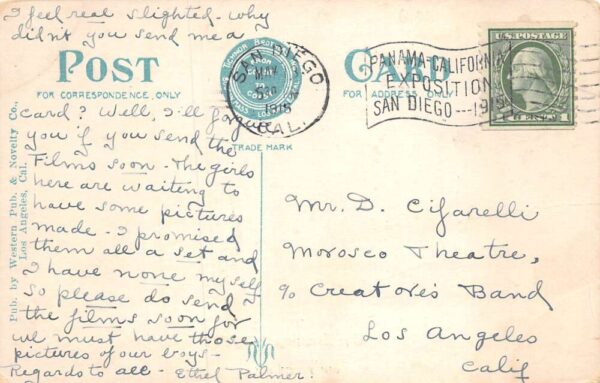 I feel real slighted - why
didn't you send me a
POST CARD
FOR CORRESPONDENCE ONLY
FOR ADDRESS ONLY
SAN DIEGO
MAY
530
1915
CAL.
PANAMA-CALIFORNIA
EXPOSITION
SAN DIEGO --- 1915
U.S. POSTAGE
TRADE MARK
Pub. by Western Pub. & Novelty Co.,
Los Angeles, Cal.
card? Well, I'll forgive
you if you send the
Films soon - The girls
here are waiting to
have some pictures
made - I promised
them all a set and
I have none myself
so please do send
the films soon for
we must have those
pictures of our boys -
Regards to all - Ethel Palmer!
Mr. D. Cifarelli
Morosco Theatre,
% Creatore's Band
Los Angeles
Calif